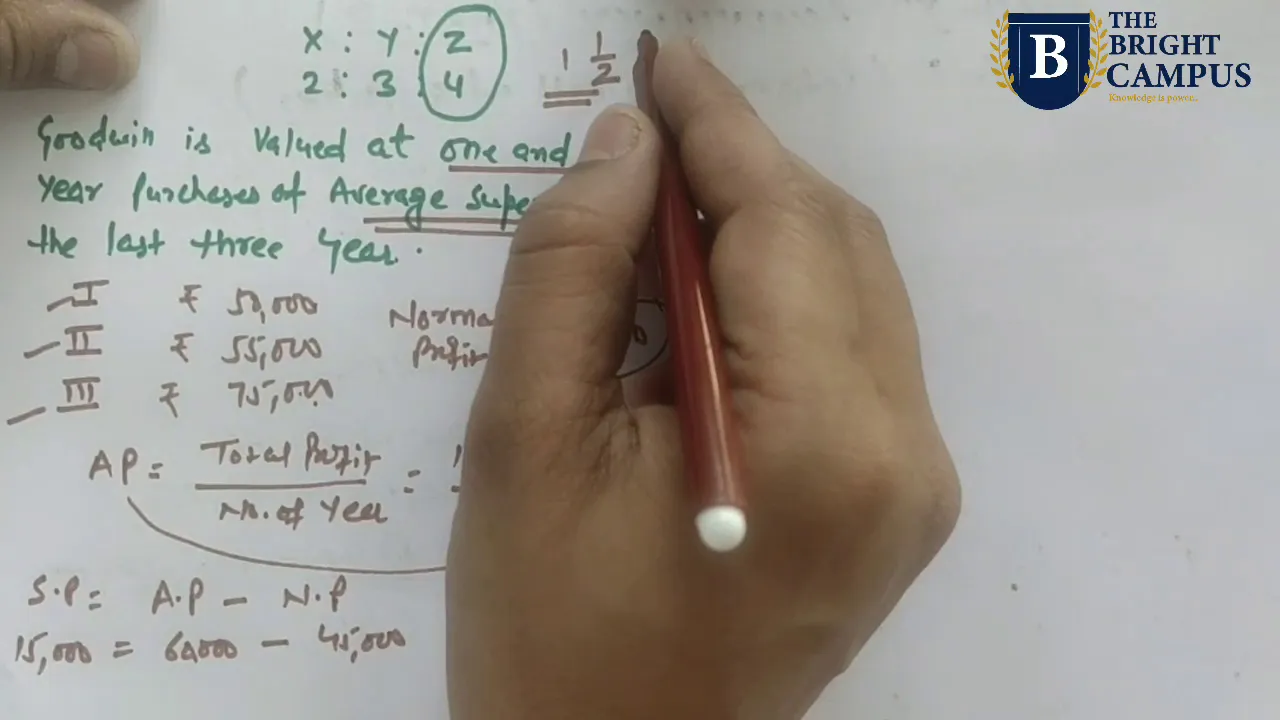 X : Y : Z
2 : 3 : 4
1 1/2
THE
BRIGHT
CAMPUS
Knowledge is power..
B
Goodwin is Valued at one and
Year purchases of Average Supe
the last three Year.
I ₹ 50,000
II ₹ 55,000
III ₹ 75,000
Norma
Profit
AP = Total Profit / No. of Year =
S.P = A.P - N.P
15,000 = 60,000 - 45,000